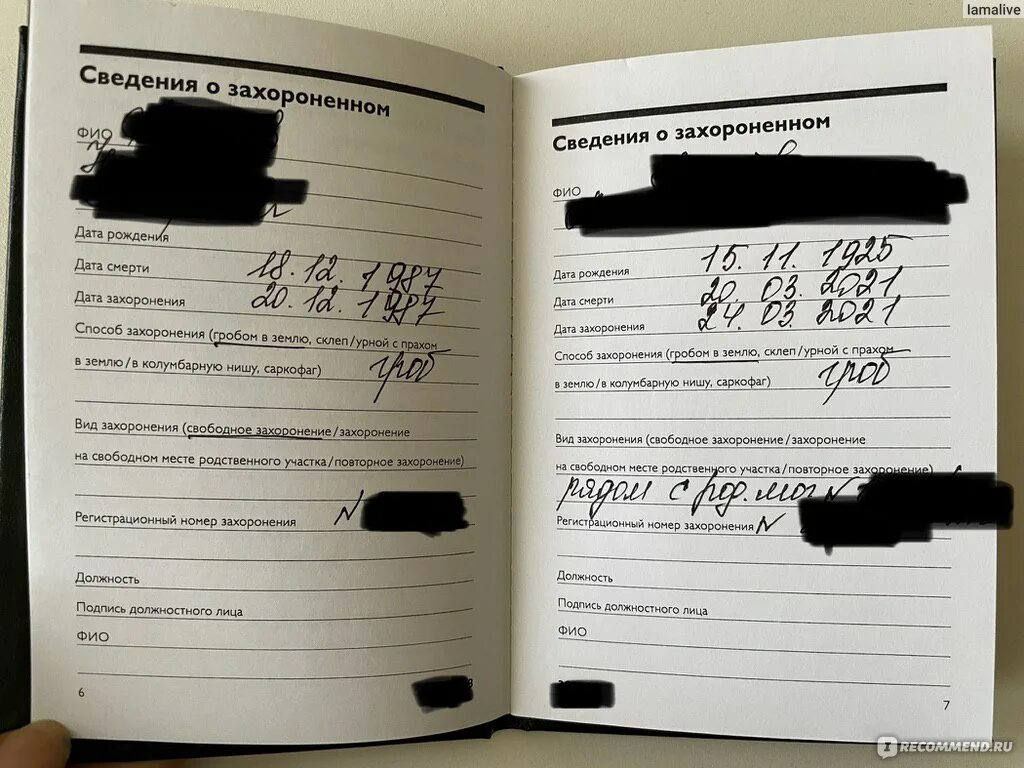 Iamalive
Сведения о захороненном
ФИО
Дата рождения
Дата смерти 18.12.1987
Дата захоронения 20.12.1987
Способ захоронения (гробом в землю, склеп/урной с прахом
в землю/в колумбарную нишу, саркофаг) гроб
Вид захоронения (свободное захоронение/захоронение
на свободном месте родственного участка/повторное захоронение)
Регистрационный номер захоронения N
Должность
Подпись должностного лица
ФИО
6
Сведения о захороненном
ФИО
Дата рождения 15.11.1925
Дата смерти 20.03.2021
Дата захоронения 24.03.2021
Способ захоронения (гробом в землю, склеп/урной с прахом
в землю/в колумбарную нишу, саркофаг) гроб
Вид захоронения (свободное захоронение/захоронение
на свободном месте родственного участка/повторное захоронение)
рядом с род. мог N
Регистрационный номер захоронения N
Должность
Подпись должностного лица
ФИО
7
IRECOMMEND.RU